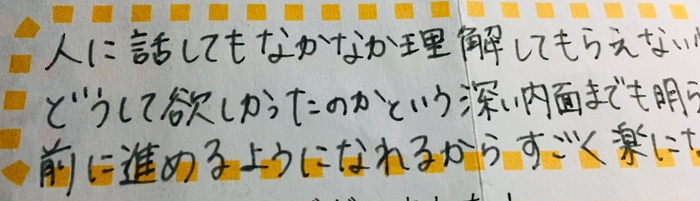 人に話してもなかなか理解してもらえない
どうして欲しかったのかという深い内面までも明ら
前に進めるようになれるからすごく楽に